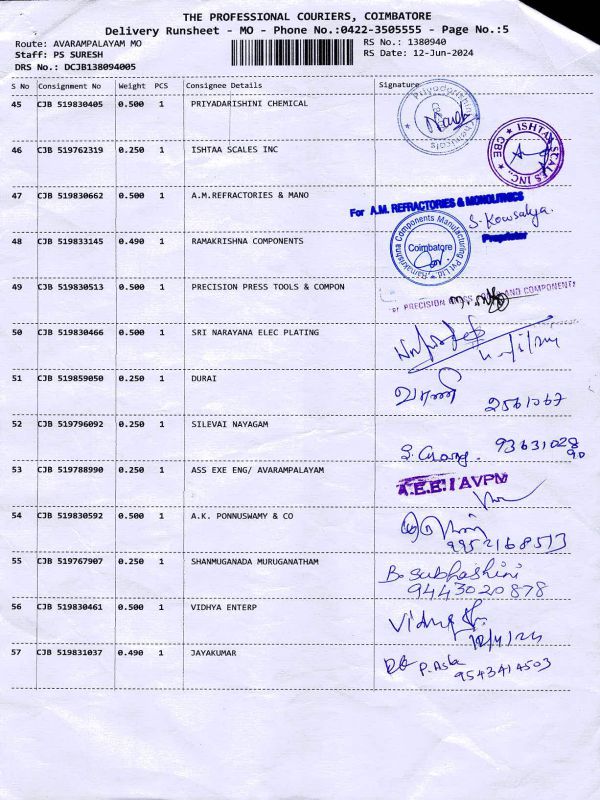 THE PROFESSIONAL COURIERS, COIMBATORE
Delivery Runsheet - MO - Phone No.:0422-3505555 - Page No.:5
Route: AVARAMPALAYAM MO
RS No.: 1380940
Staff: PS SURESH
RS Date: 12-Jun-2024
DRS No.: DCJB138094005
S No Consignment No Weight PCS Consignee Details Signature
45 CJB 519830405 0.500 1 PRIYADARISHINI CHEMICAL
46 CJB 519762319 0.250 1 ISHTAA SCALES INC
ISHTAA SCALES INC., CBE
47 CJB 519830662 0.500 1 A.M.REFRACTORIES & MANO
For A.M. REFRACTORIES & MONOLITHICS
S. Kowsalya.
Proprietor
48 CJB 519833145 0.490 1 RAMAKRISHNA COMPONENTS
Ramakrishna Components Manufacturing Pvt Ltd.,
Coimbatore
49 CJB 519830513 0.500 1 PRECISION PRESS TOOLS & COMPON
PRECISION AND COMPONENT
50 CJB 519830466 0.500 1 SRI NARAYANA ELEC PLATING
51 CJB 519859050 0.250 1 DURAI
2561067
52 CJB 519796092 0.250 1 SILEVAI NAYAGAM
93631028
90
53 CJB 519788990 0.250 1 ASS EXE ENG/ AVARAMPALAYAM
A.E.E. / AVPM
54 CJB 519830592 0.500 1 A.K. PONNUSWAMY & CO
9952168513
55 CJB 519767907 0.250 1 SHANMUGANADA MURUGANATHAM
B. Subhashini
9443020878
56 CJB 519830461 0.500 1 VIDHYA ENTERP
57 CJB 519831037 0.490 1 JAYAKUMAR
P. Asha
9543414503